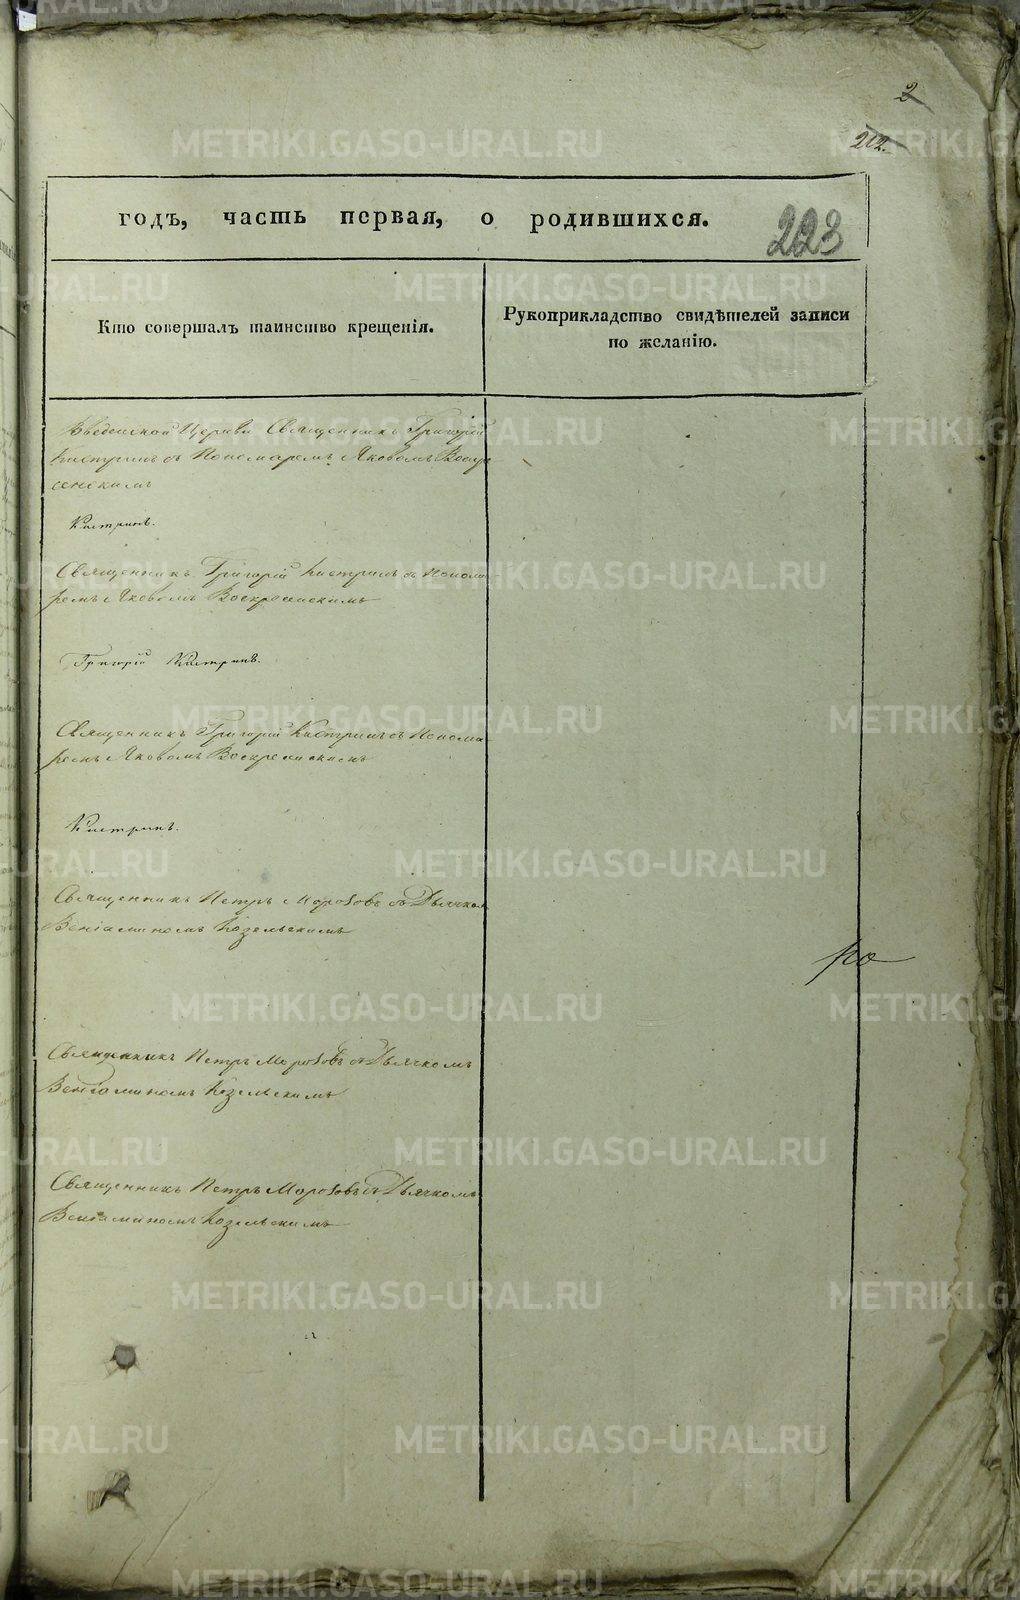 2
212.
годъ, часть первая, о родившихся.
223
Кто совершалъ таинство крещенія.
Рукоприкладство свидѣтелей записи
по желанію.
Введенской Церкви Священникъ Григорій
Кистринъ съ Пономаремъ Яковомъ Воскре
сенскимъ
Кистринъ.
Священникъ Григорій Кистринъ съ Понома
ремъ Яковомъ Воскресенскимъ
Григорій Кистринъ.
Священникъ Григорій Кистринъ съ Понома
ремъ Яковомъ Воскресенскимъ
Кистринъ.
Священникъ Петръ Морозовъ съ Дьячкомъ
Веніаминомъ Козельскимъ
по
Священникъ Петръ Морозовъ съ Дьячкомъ
Веніаминомъ Козельскимъ
Священникъ Петръ Морозовъ съ Дьячкомъ
Веніаминомъ Козельскимъ
METRIKI.GASO-URAL.RU